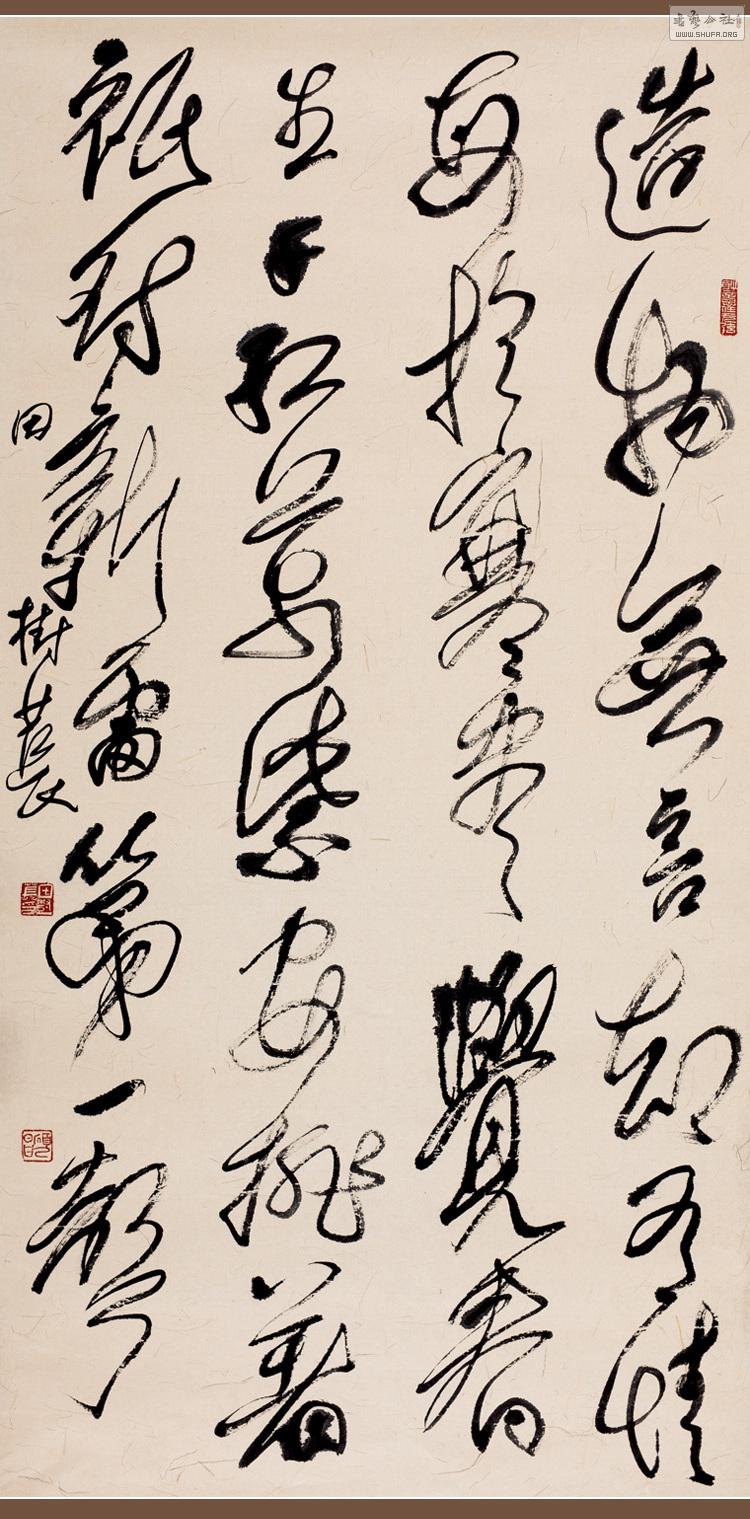 書藝公社
WWW.SHUFA.ORG
造物無言却有情
每於寒盡覺春
生千紅萬紫安排著
祇待新雷第一聲
田樹萇